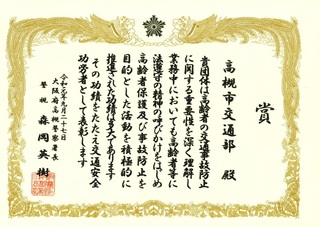 賞
高槻市交通部 殿
貴団体は高齢者の交通事故防止
に関する重要性を深く理解し
業務中においても高齢者等に
法遵守の精神の呼びかけをはじめ
高齢者保護及び事故防止を
目的とした活動を積極的に
推進された功績はまことに
その功績をたたえ交通安全
功労者として表彰します
令和元年九月二十七日
大阪府高槻警察署長
警視 森岡英樹